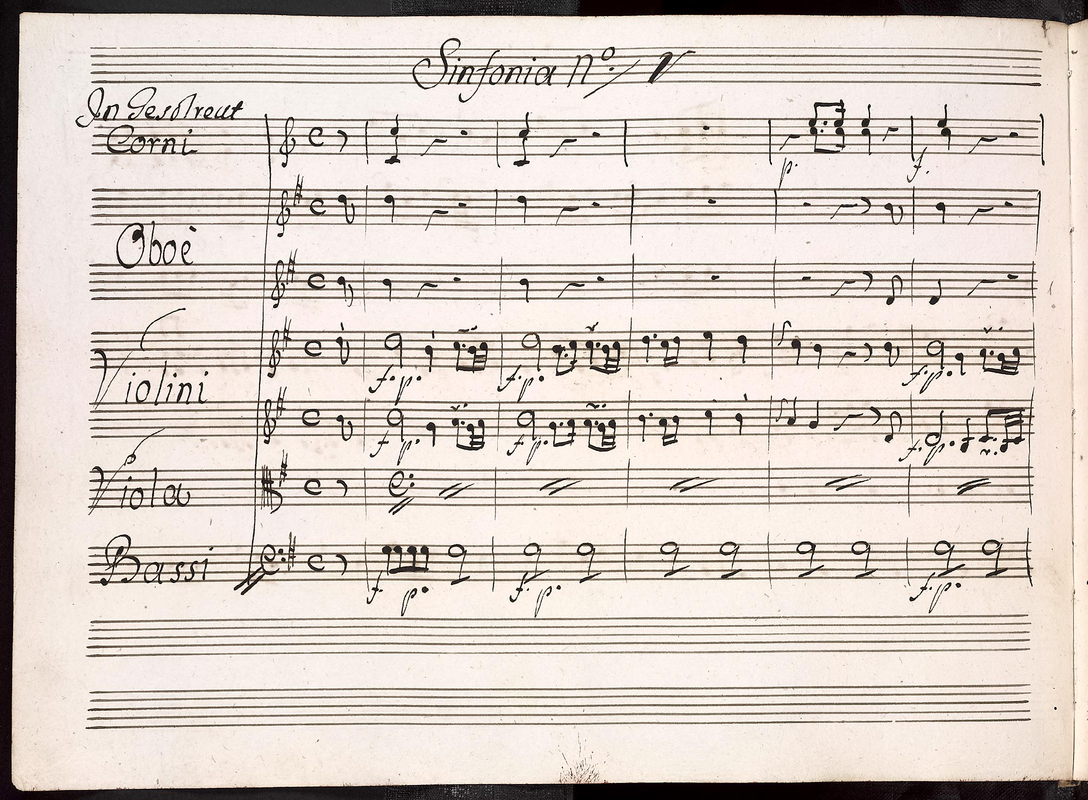 Sinfonia No: V
In Gesolreut
Corni
p. f.
Oboè
Violini
f. p. f. p. f. p.
f. p. f. p. f. p.
Viola
Bassi
f. p. f. p. f. p.